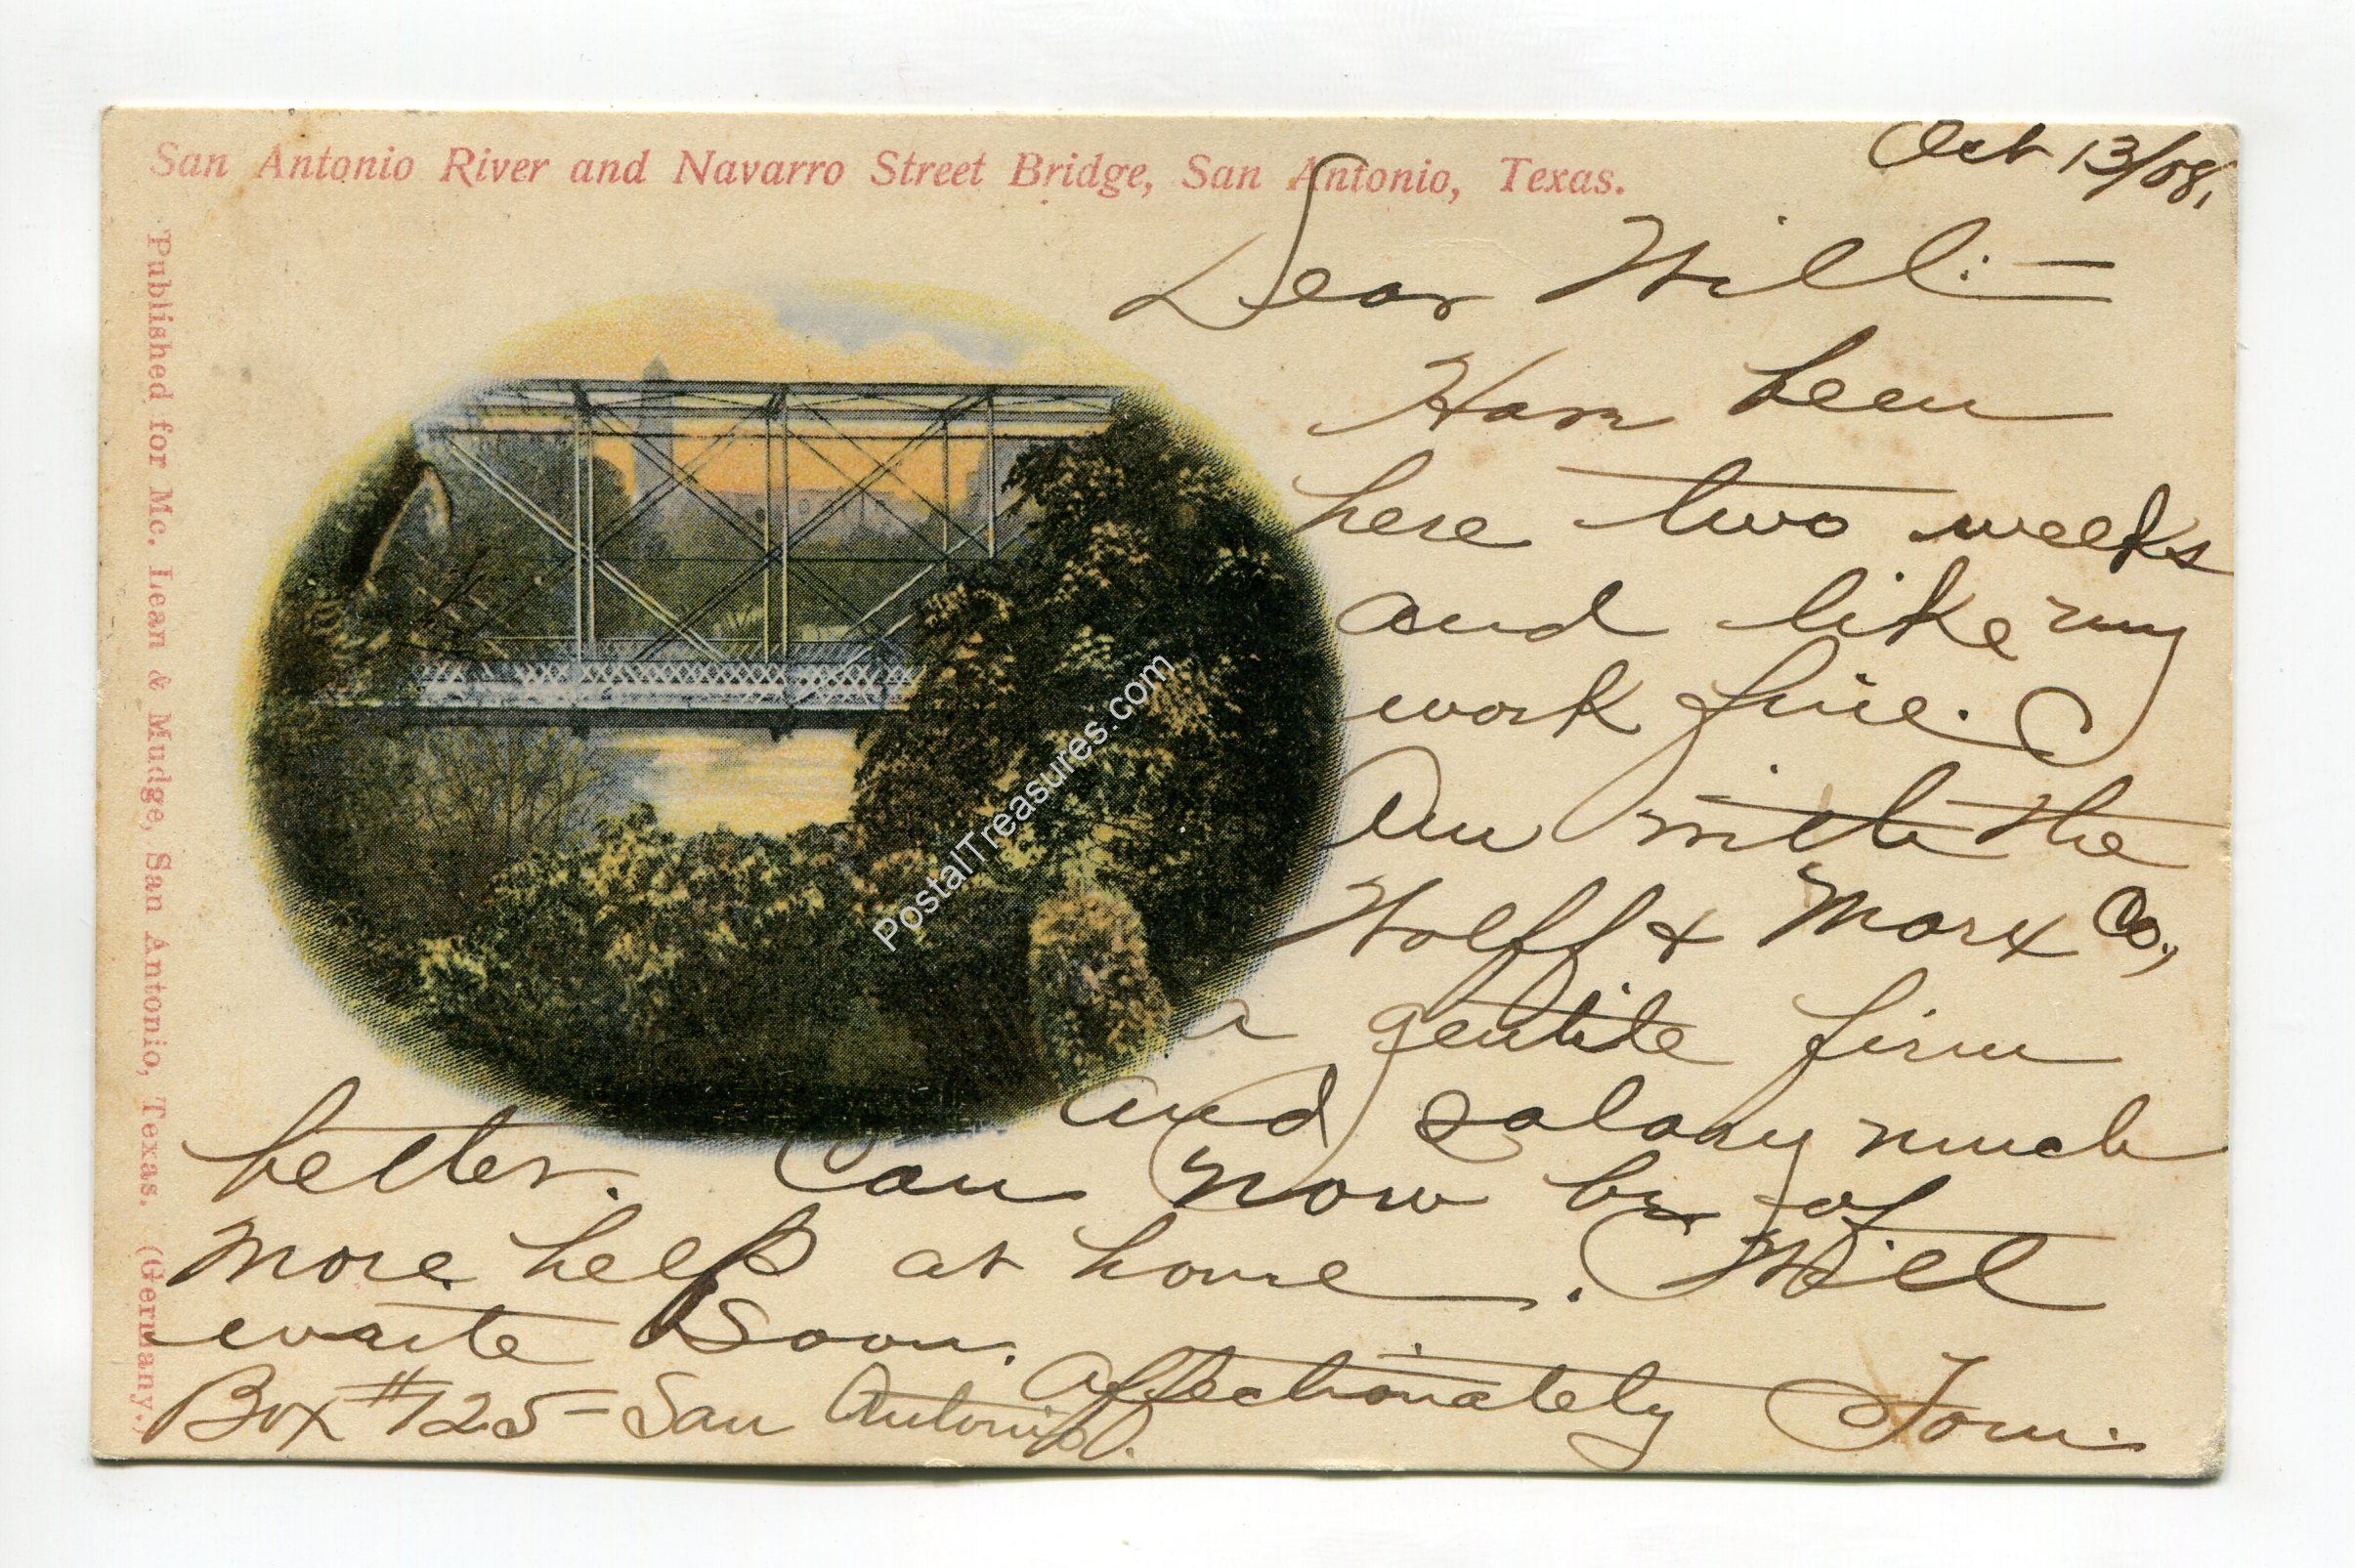 San Antonio River and Navarro Street Bridge, San Antonio, Texas.
Published for Mc. Lean & Mudge, San Antonio, Texas. (Germany.)
Oct 13/08,
Dear Will:—
Have been
here two weeks
and like my
work fine.
Am with the
Wolff & Marx Co.,
a gentile firm
and salary much
better. Can now be of
more help at home. Will
write soon.
Affectionately Tom.
Box #725 - San Antonio.
PostalTreasures.com